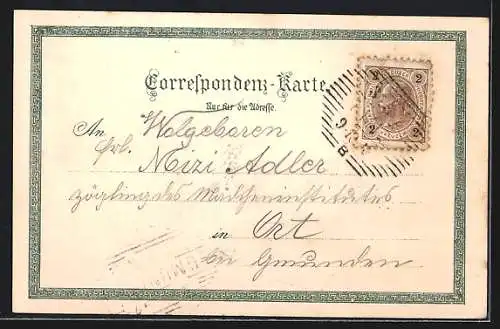 Correspondenz-Karte
Nur für die Adresse.
2 2
An Wolgeboren
Frl. Mizi Adler
Zögling des Mädcheninstitutes
in Ort
bei Gmunden
9
B
2 2